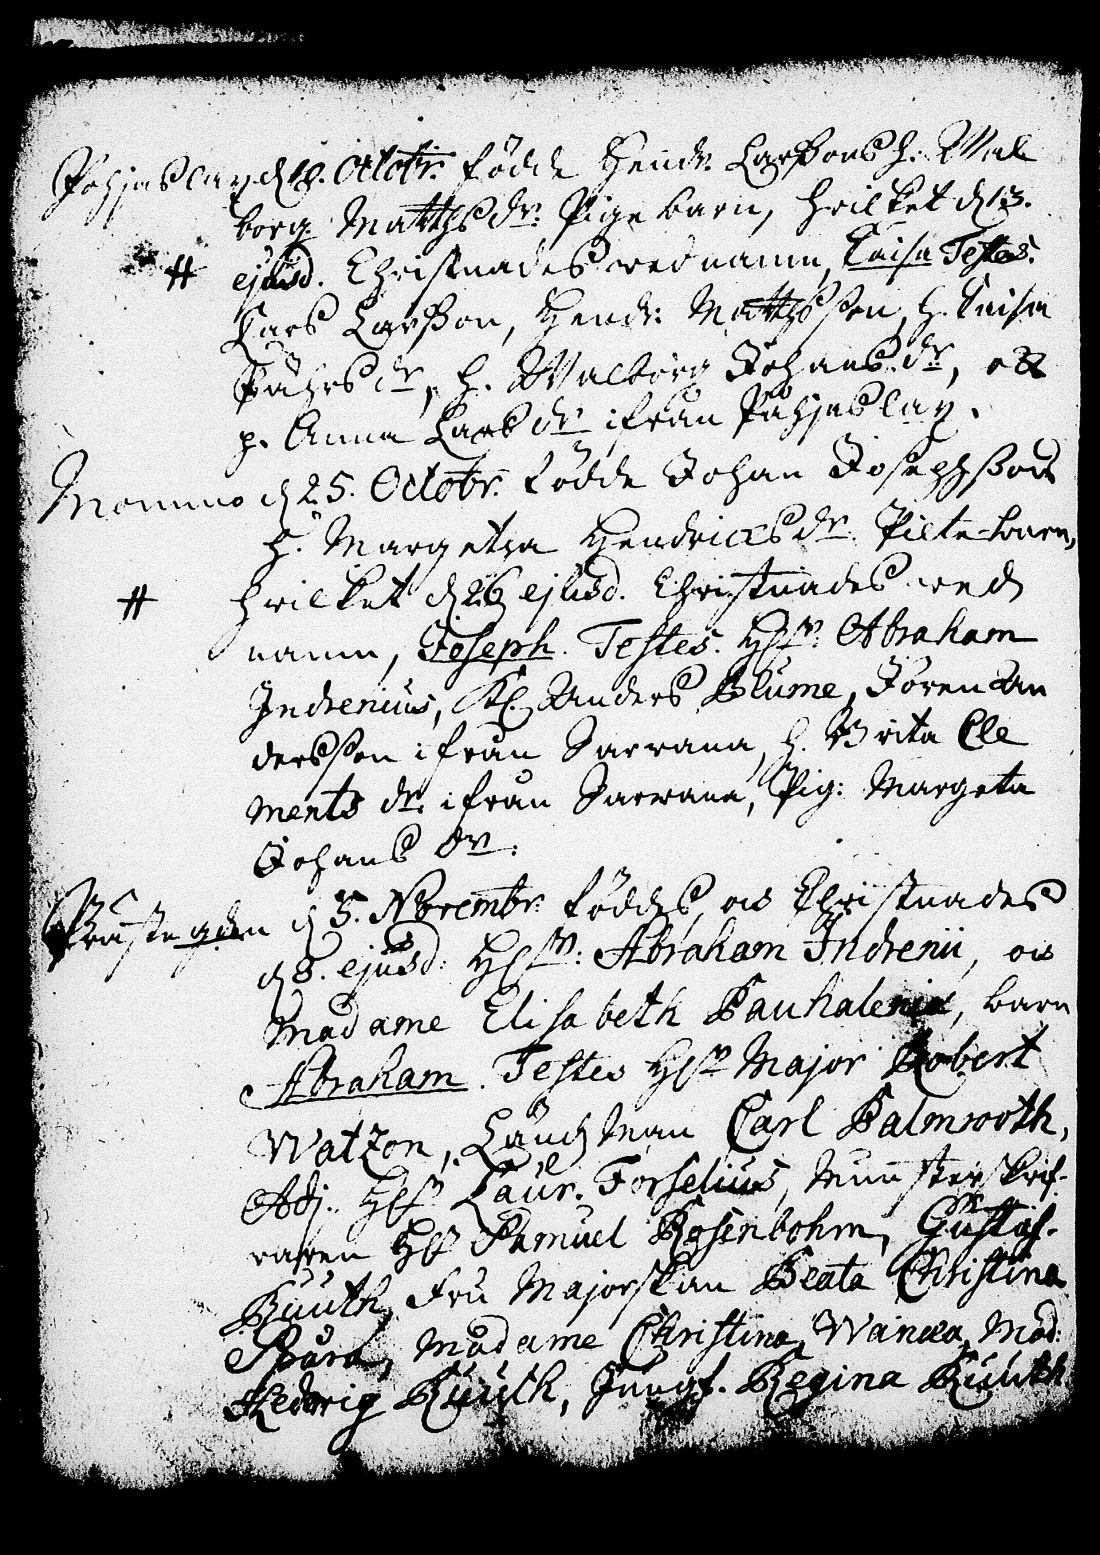 Påhjaslax d. 8. Octobr. födde Hendr. Larssons h. Wal
borg Matthsdr. Pigebarn, hvilket d. 13.
# ejusd. Christnades wed namn, Caisa Testes.
Lars Larsson, Hendr: Matthsson, h. Caisa
Påhlsdr, h. Walborg Johansdr, och
p. Anna Larsdr ifrån Påhjaslax.
Mommo d. 25. Octobr. födde Johan Josephssons
h. Margetha Hendricsdr Piltebarn,
# hvilket d. 26 ejusd. Christnades wed
namn, Joseph. Testes. Hr Abraham
Indrenius, Kl. Anders Blume, Jören An
dersson ifrån Sarwana, h. Brita Cle
ments dr. ifrån Sarwana, Pig: Margeta
Johans dr.
Prästegården d. 5. Novembr. föddes, och Christnades
d. 8. ejusd: Hr: Abraham Indrenii, och
Madame Elisabeth Pauhalenia, barn
Abraham. Testes Hr Major Robert
Watzon, Länsman Carl Palmrooth,
Adj. Hr Laur. Forselius, Munsterskrif-
varen Hr Samuel Rosenbohm, Gustaf
Kuuth, Fru Majorskan Beata Christina
Madame Christina Wancea, Mad:
Hedwig Kuuth, Jungf. Regina Kuuth